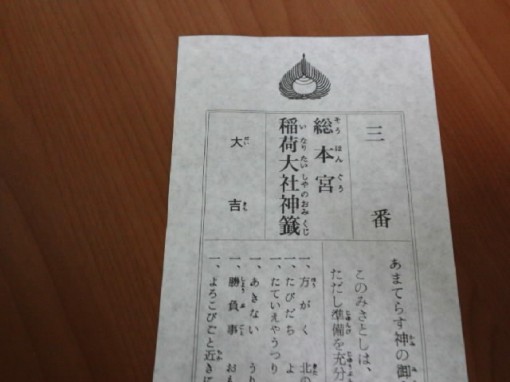 三番
総本宮
稲荷大社神籤
大吉
あまてらす神の御
このみさとしは、
ただし準備を充分
一、方がく 北の
一、たびだち よ
一、たていえやうつり
一、あきない う
一、勝負事 お
一、よろこびごと近きに